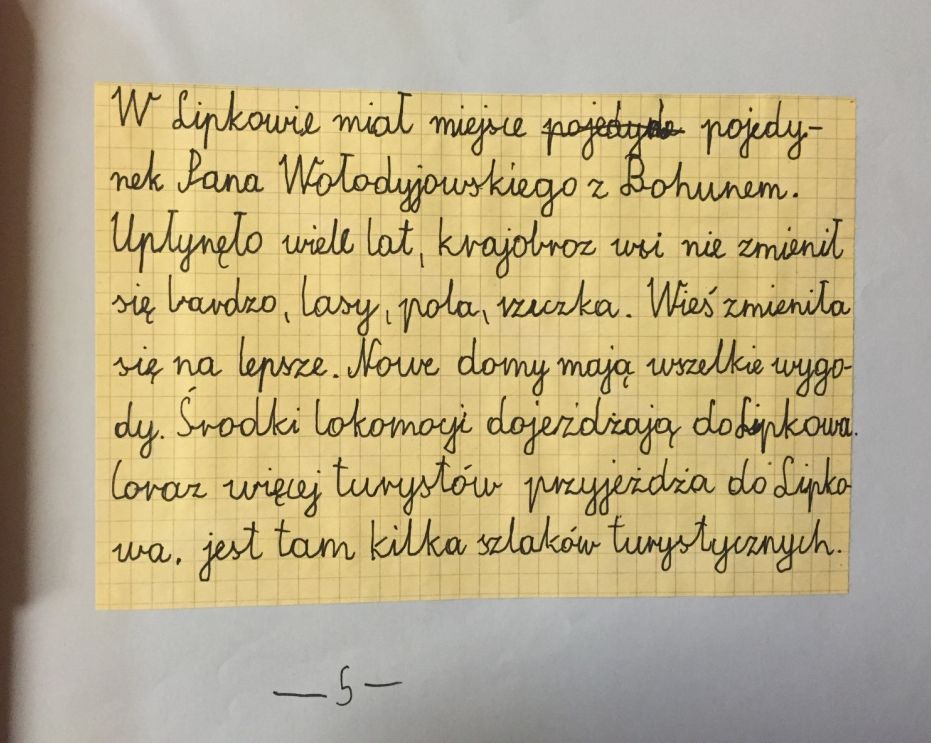 W Lipkowie miał miejsce pojedyn- pojedy-
nek Pana Wołodyjowskiego z Bohunem.
Upłynęło wiele lat, krajobraz wsi nie zmienił
się bardzo, lasy, pola, rzeczka. Wieś zmieniła
się na lepsze. Nowe domy mają wszelkie wygo-
dy. Środki lokomocji dojeżdżają do Lipkowa.
Coraz więcej turystów przyjeżdża do Lipko
wa. jest tam kilka szlaków turystycznych.
— 5 —